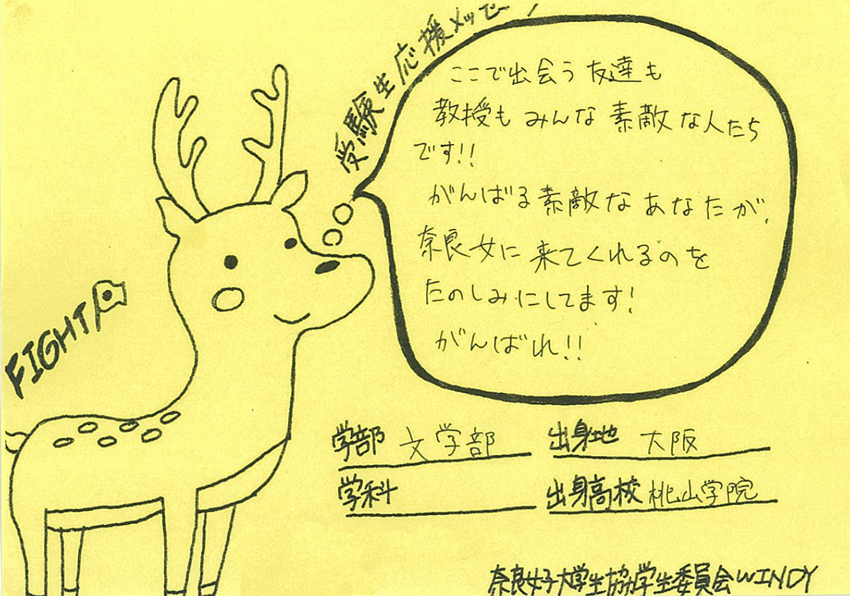 受験生応援メッセージ
ここで出会う友達も
教授もみんな素敵な人たち
です!!
がんばる素敵なあなたが、
奈良女に来てくれるのを
たのしみにしてます!
がんばれ!!
FIGHT
学部 文学部 出身地 大阪
学科 出身高校 桃山学院
奈良女子大学生協学生委員会WINDY